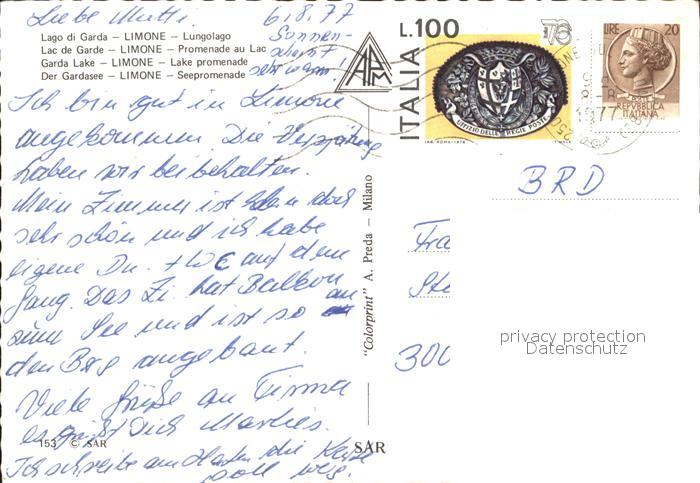 Liebe Mutti. 6.8.77
Sonnen-
schein
sehr warm!
Lago di Garda – LIMONE – Lungolago
Lac de Garde – LIMONE – Promenade au Lac
Garda Lake – LIMONE – Lake promenade
Der Gardasee – LIMONE – Seepromenade
Ich bin gut in Limone
angekommen. Die Verspätung
haben wir beibehalten.
Mein Zimmer ist eben doch
sehr schön und ich habe
eigene Du. + WC auf dem
Gang. Das Zi. hat Balkon
zum See und ist so an
den Berg angebaut.
Viele Grüße an Firma
es grüßt Dich Marlies.
Ich schreibe am Hafen die Karte
voll weg.
153 © SAR
SAR
"Colorprint" A. Preda – Milano
L.100
ITALIA
UFFIZIO DELLE REGIE POSTE
I.P.S.-ROMA-1976
LIRE 20
REPVBBLICA
ITALIANA
1977
BRD
Fra
Ste
300
privacy protection
Datenschutz